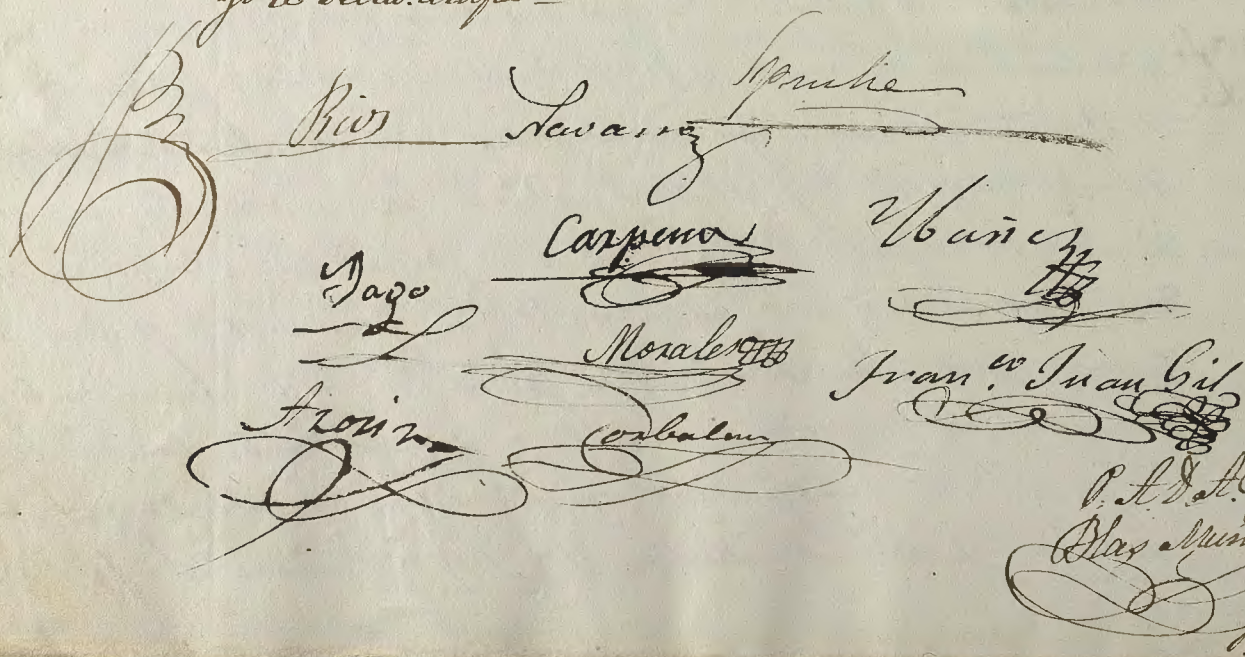 Rios Navarro
Carpena Ybañez
Yago
Morales
Fran.co Juan Gil
Azorin Corbalan
P. A. D. A.
Blas Muñ